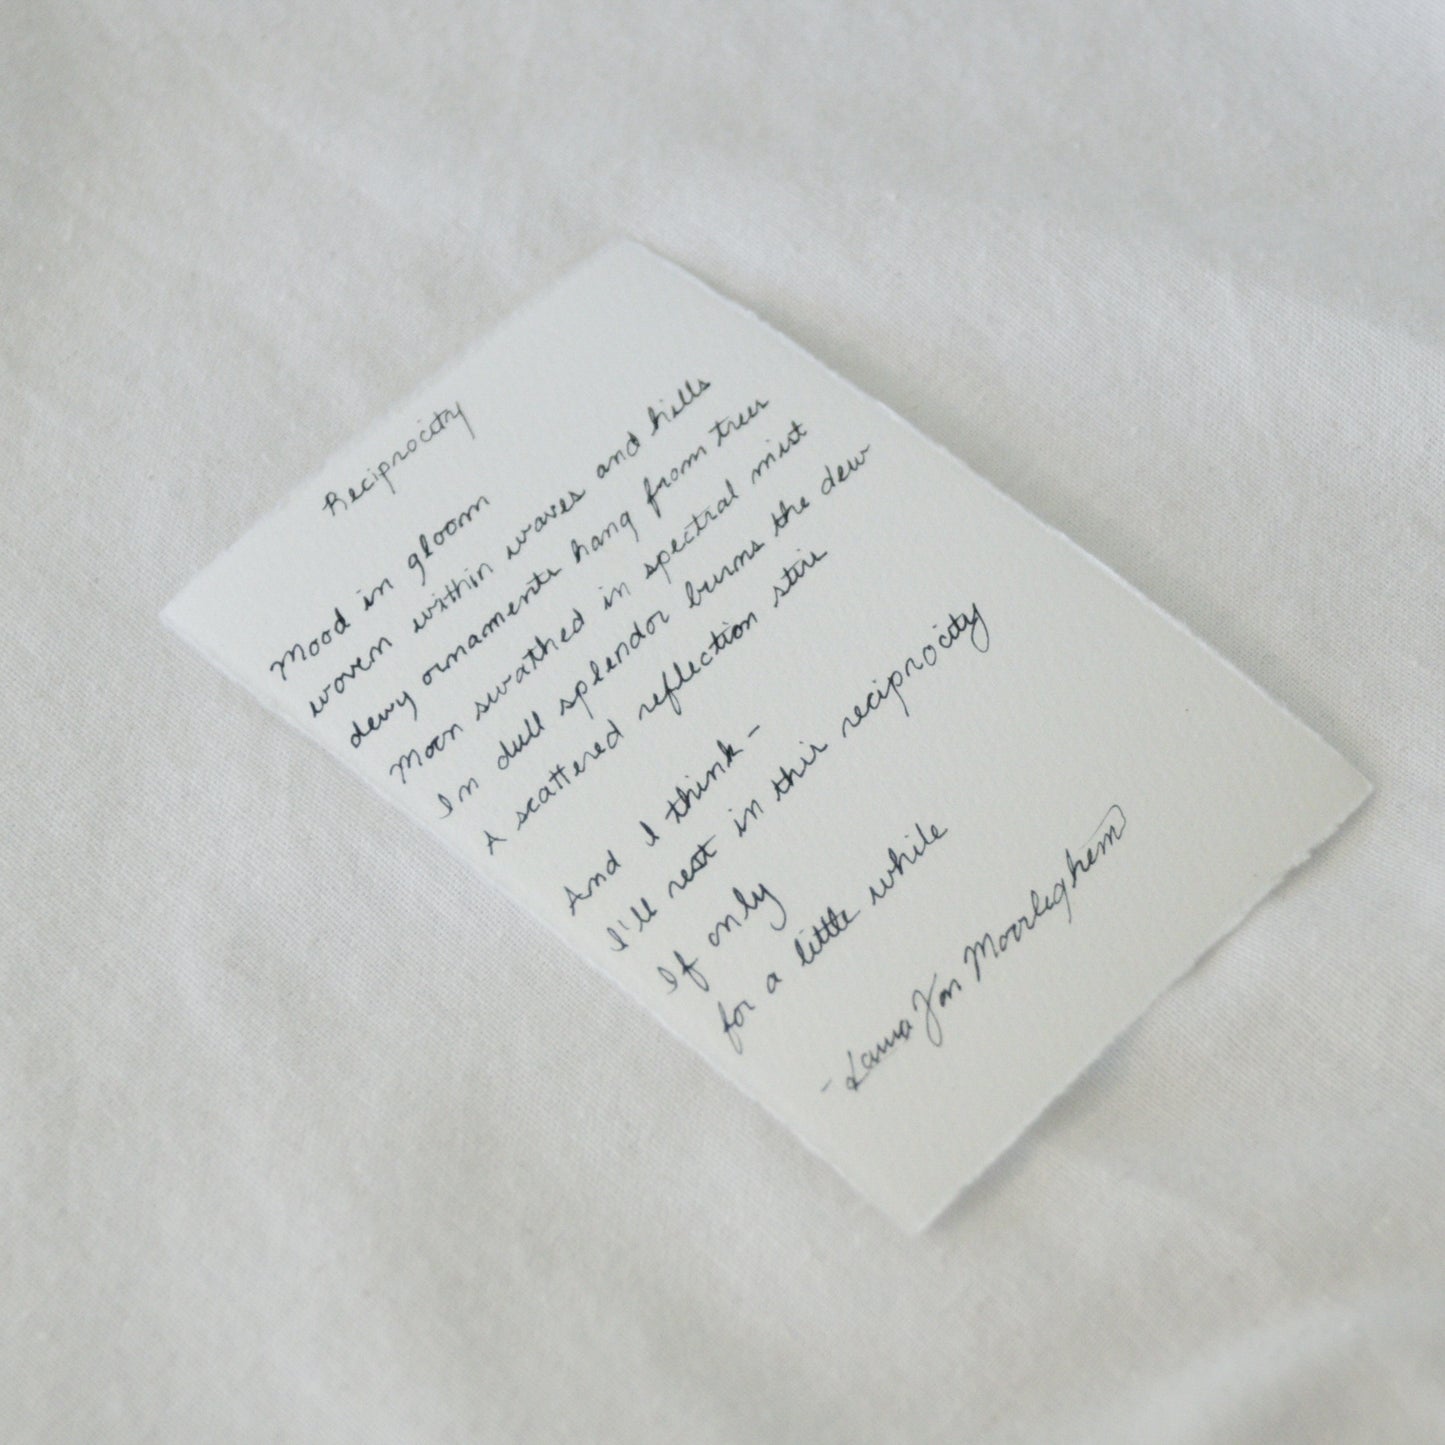 Reciprocity
Mood in gloom
woven within waves and hills
dewy ornaments hang from trees
Moon swathed in spectral mist
In dull splendor burns the dew
A scattered reflection stirs
And I think-
I'll rest in this reciprocity
If only
for a little while
-Laura Van Moorleghem